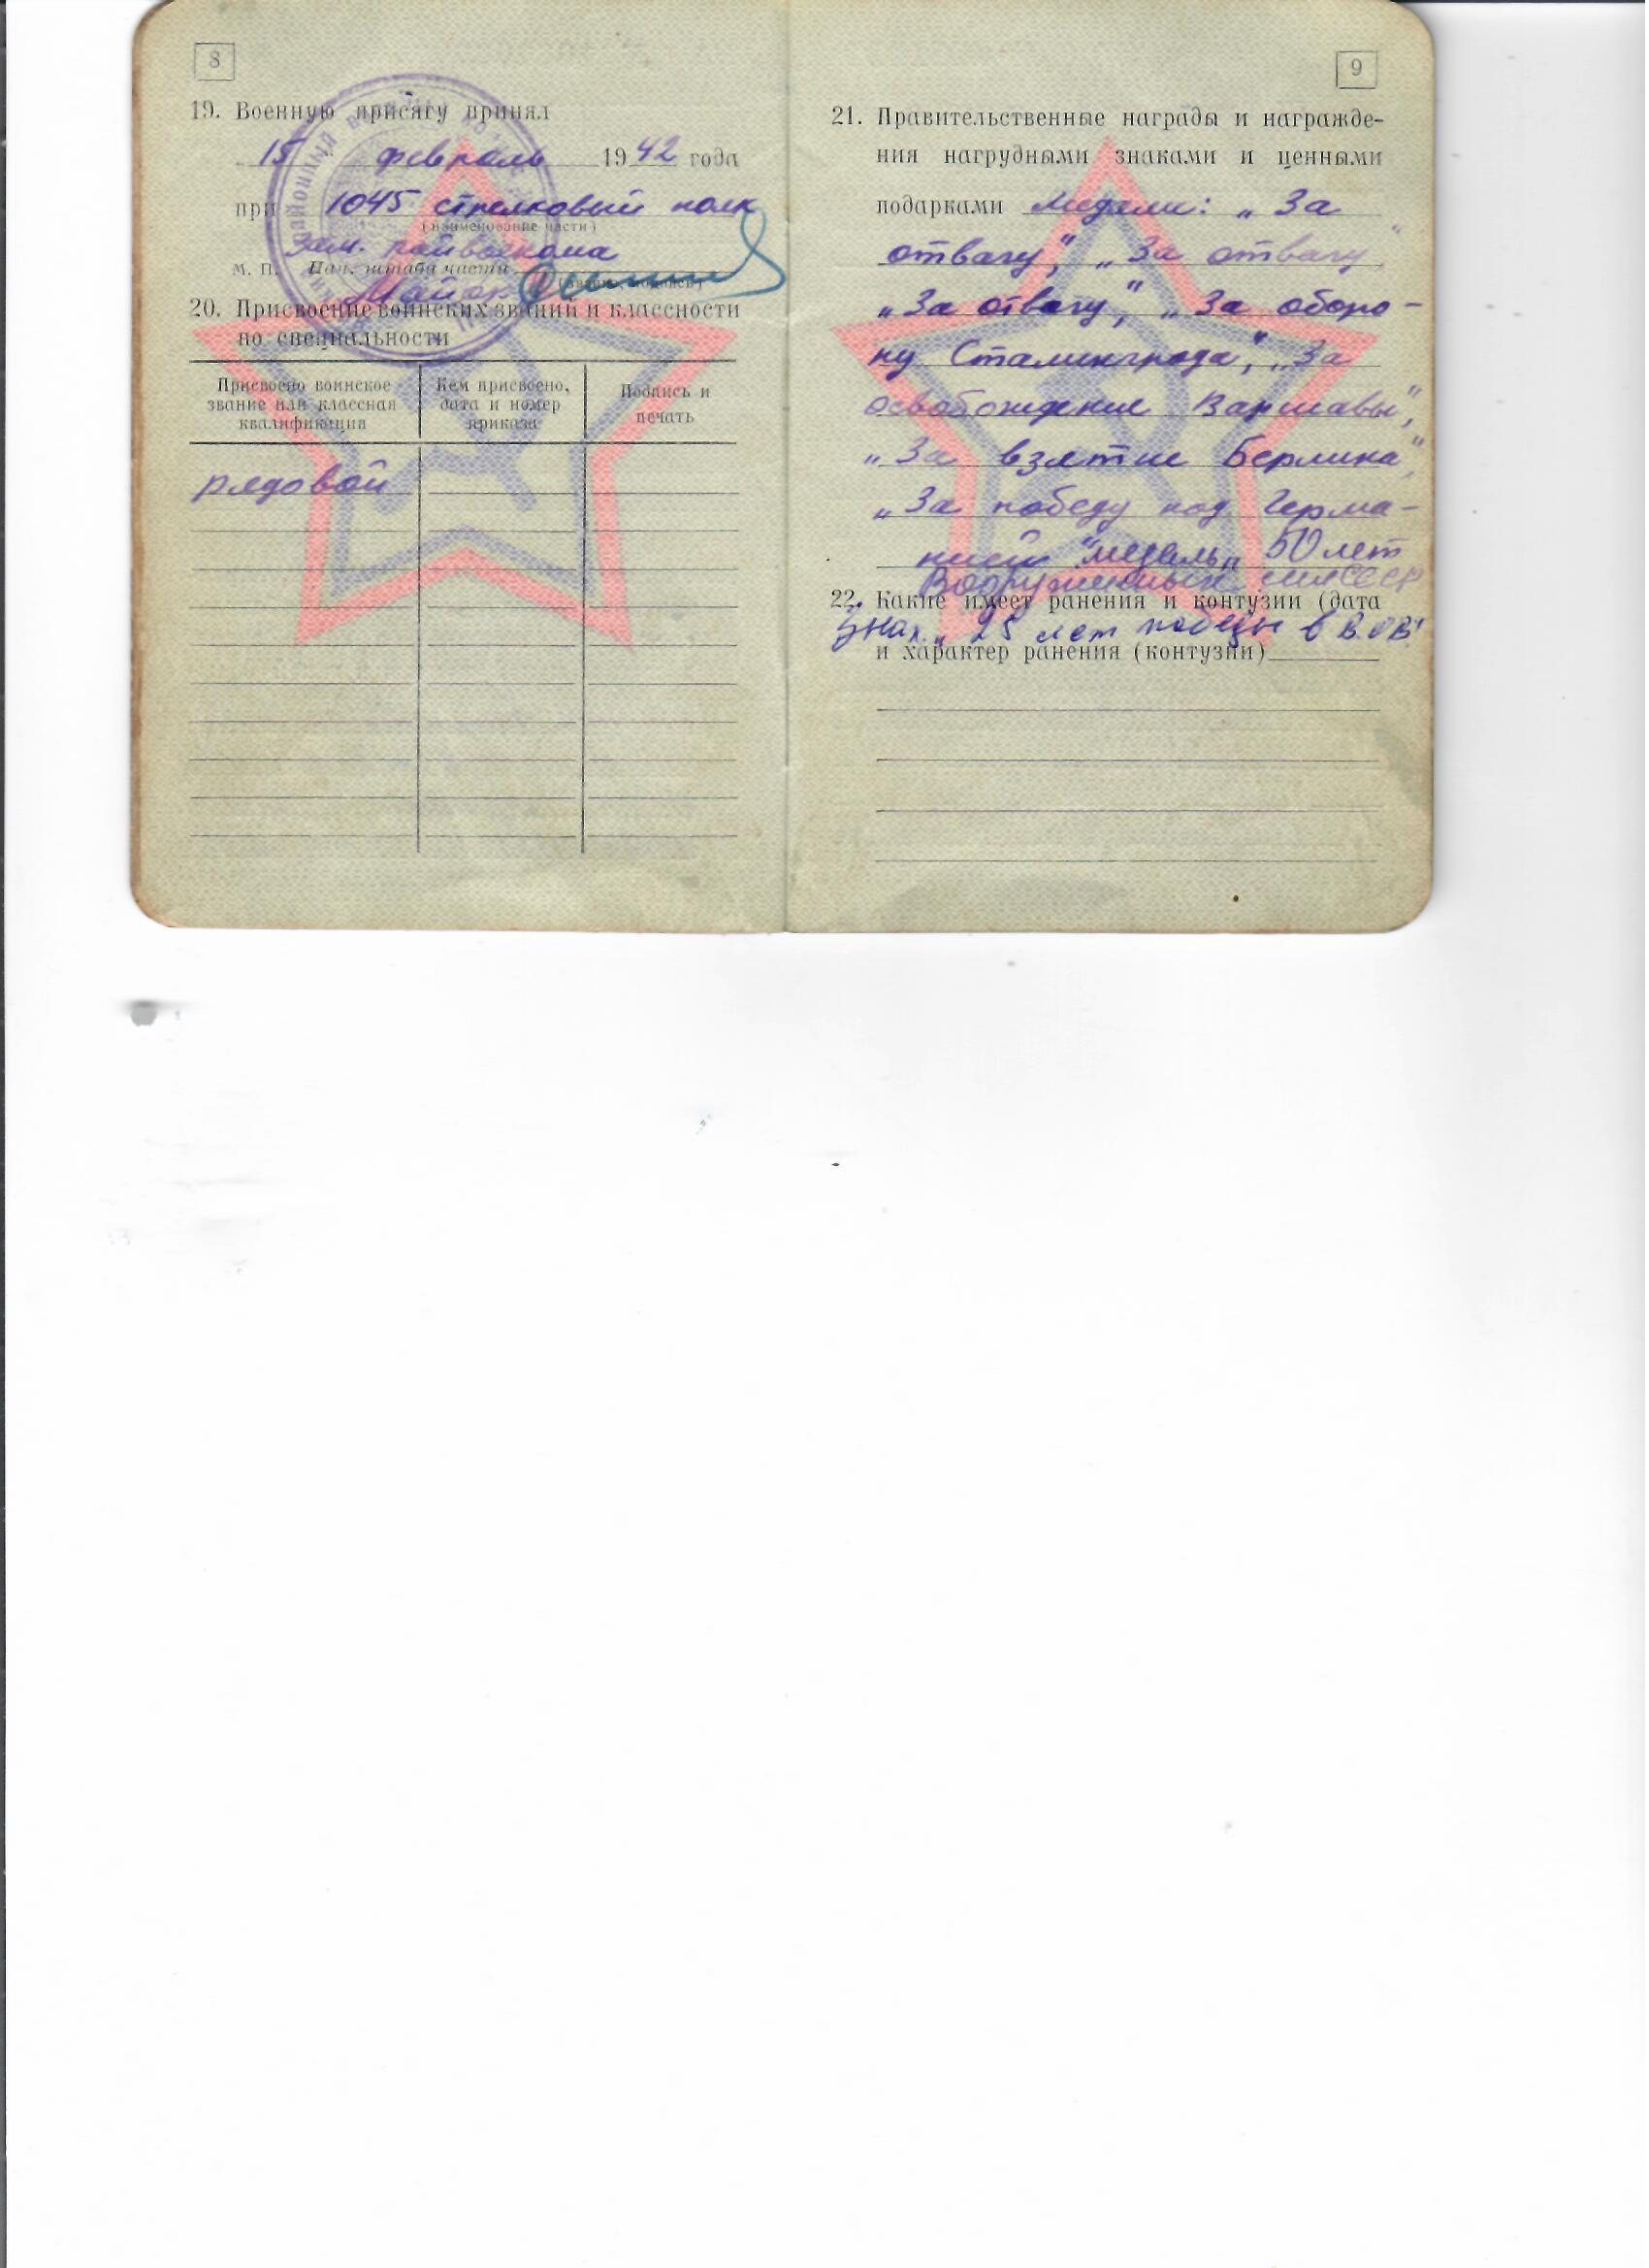 8
19. Военную присягу принял
15 февраль 1942 года
при 1045 стрелковый полк
(наименование части)
Зам. райвоенкома
М. П. Нач. штаба части
Майор
(звание, подпись)
20. Присвоение воинских званий и классности
по специальности
Присвоено воинское звание или классная квалификация
Кем присвоено, дата и номер приказа
Подпись и печать
рядовой
9
21. Правительственные награды и награжде-
ния нагрудными знаками и ценными
подарками Медали: „За
отвагу", „За отвагу"
„За отвагу", „За оборо-
ну Сталинграда", „За
освобождение Варшавы",
„За взятие Берлина",
„За победу над Герма-
нией" медаль „50 лет
Вооруженных сил СССР
22. Какие имеет ранения и контузии (дата
Знак „25 лет победы в В.О.В"
и характер ранения (контузии)